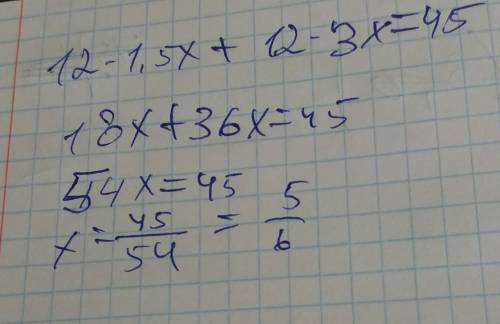 12-1,5x+ 12-3x=45
18x+36x=45
54x=45
x=45/54=5/6